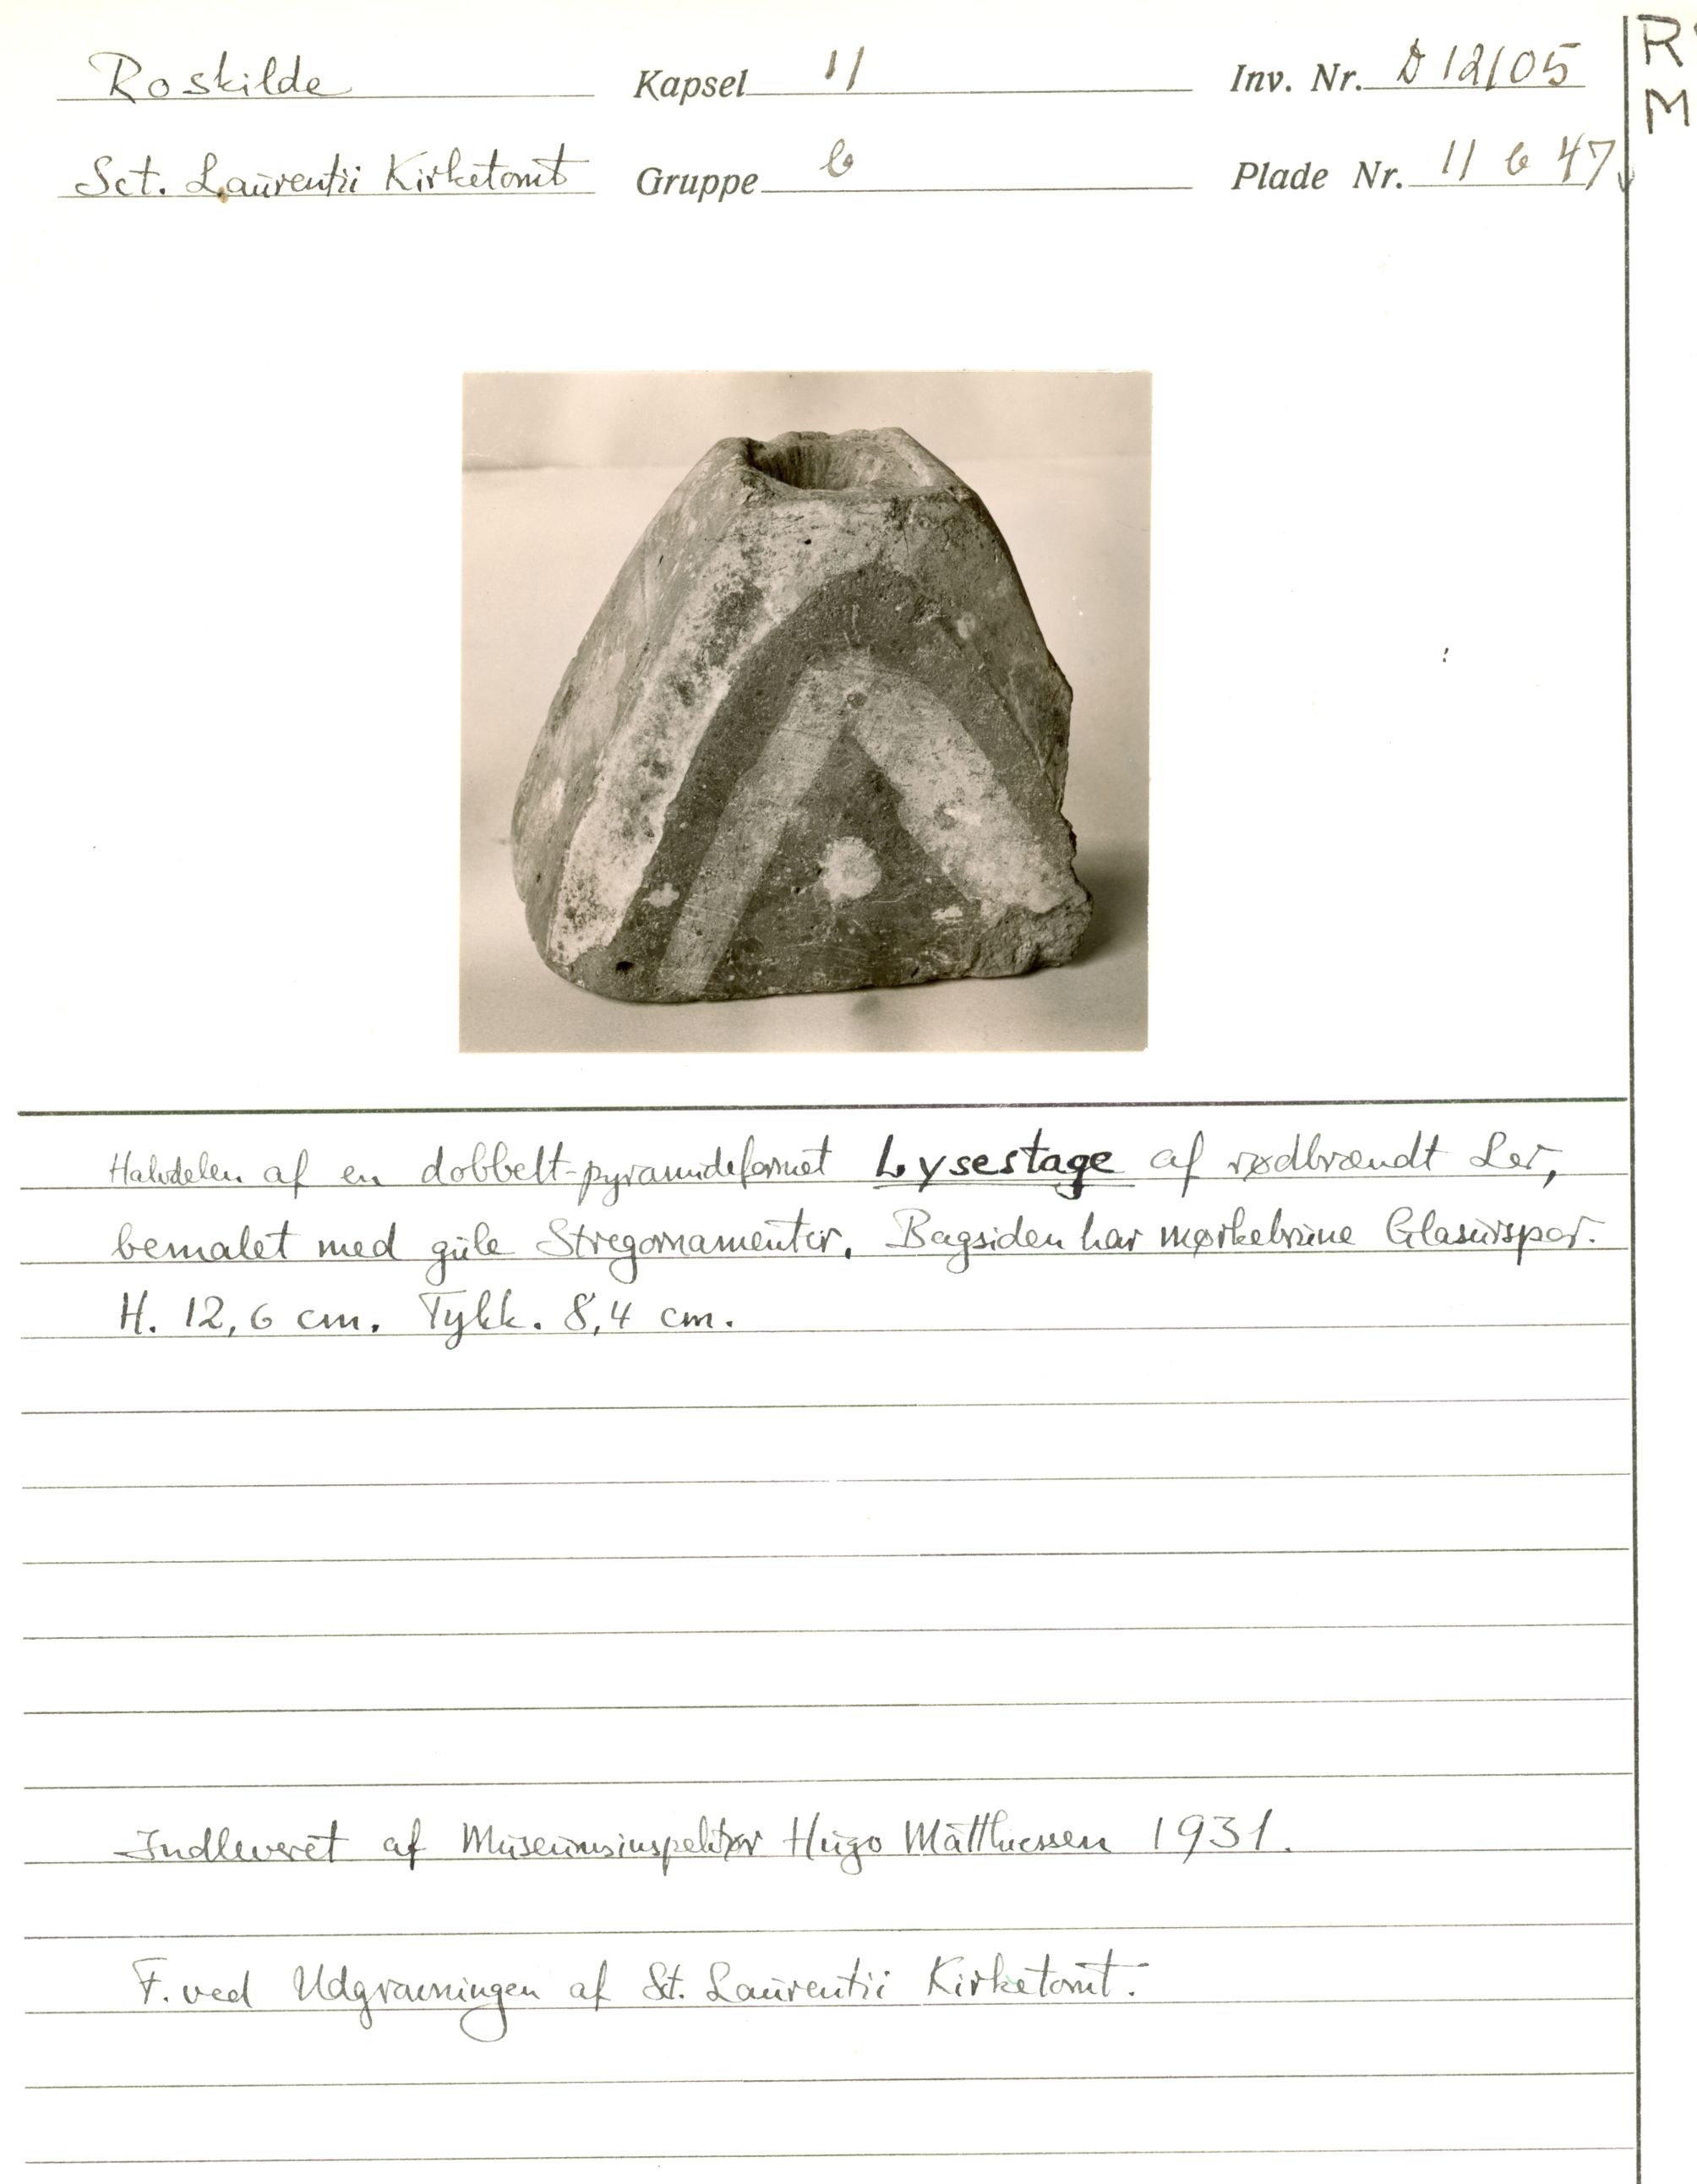 Roskilde Kapsel 11 Inv. Nr. D 12105
Sct. Laurentii Kirketomt Gruppe b Plade Nr. 11 b 47
R
M
Halvdelen af en dobbelt-pyramideformet Lysestage af rødbrændt Ler,
bemalet med gule Stregornamenter. Bagsiden har mørkebrune Glasurspor.
H. 12,6 cm. Tykk. 8,4 cm.
Indleveret af Museumsinspektør Hugo Matthiessen 1931.
F. ved Udgravningen af St. Laurentii Kirketomt.